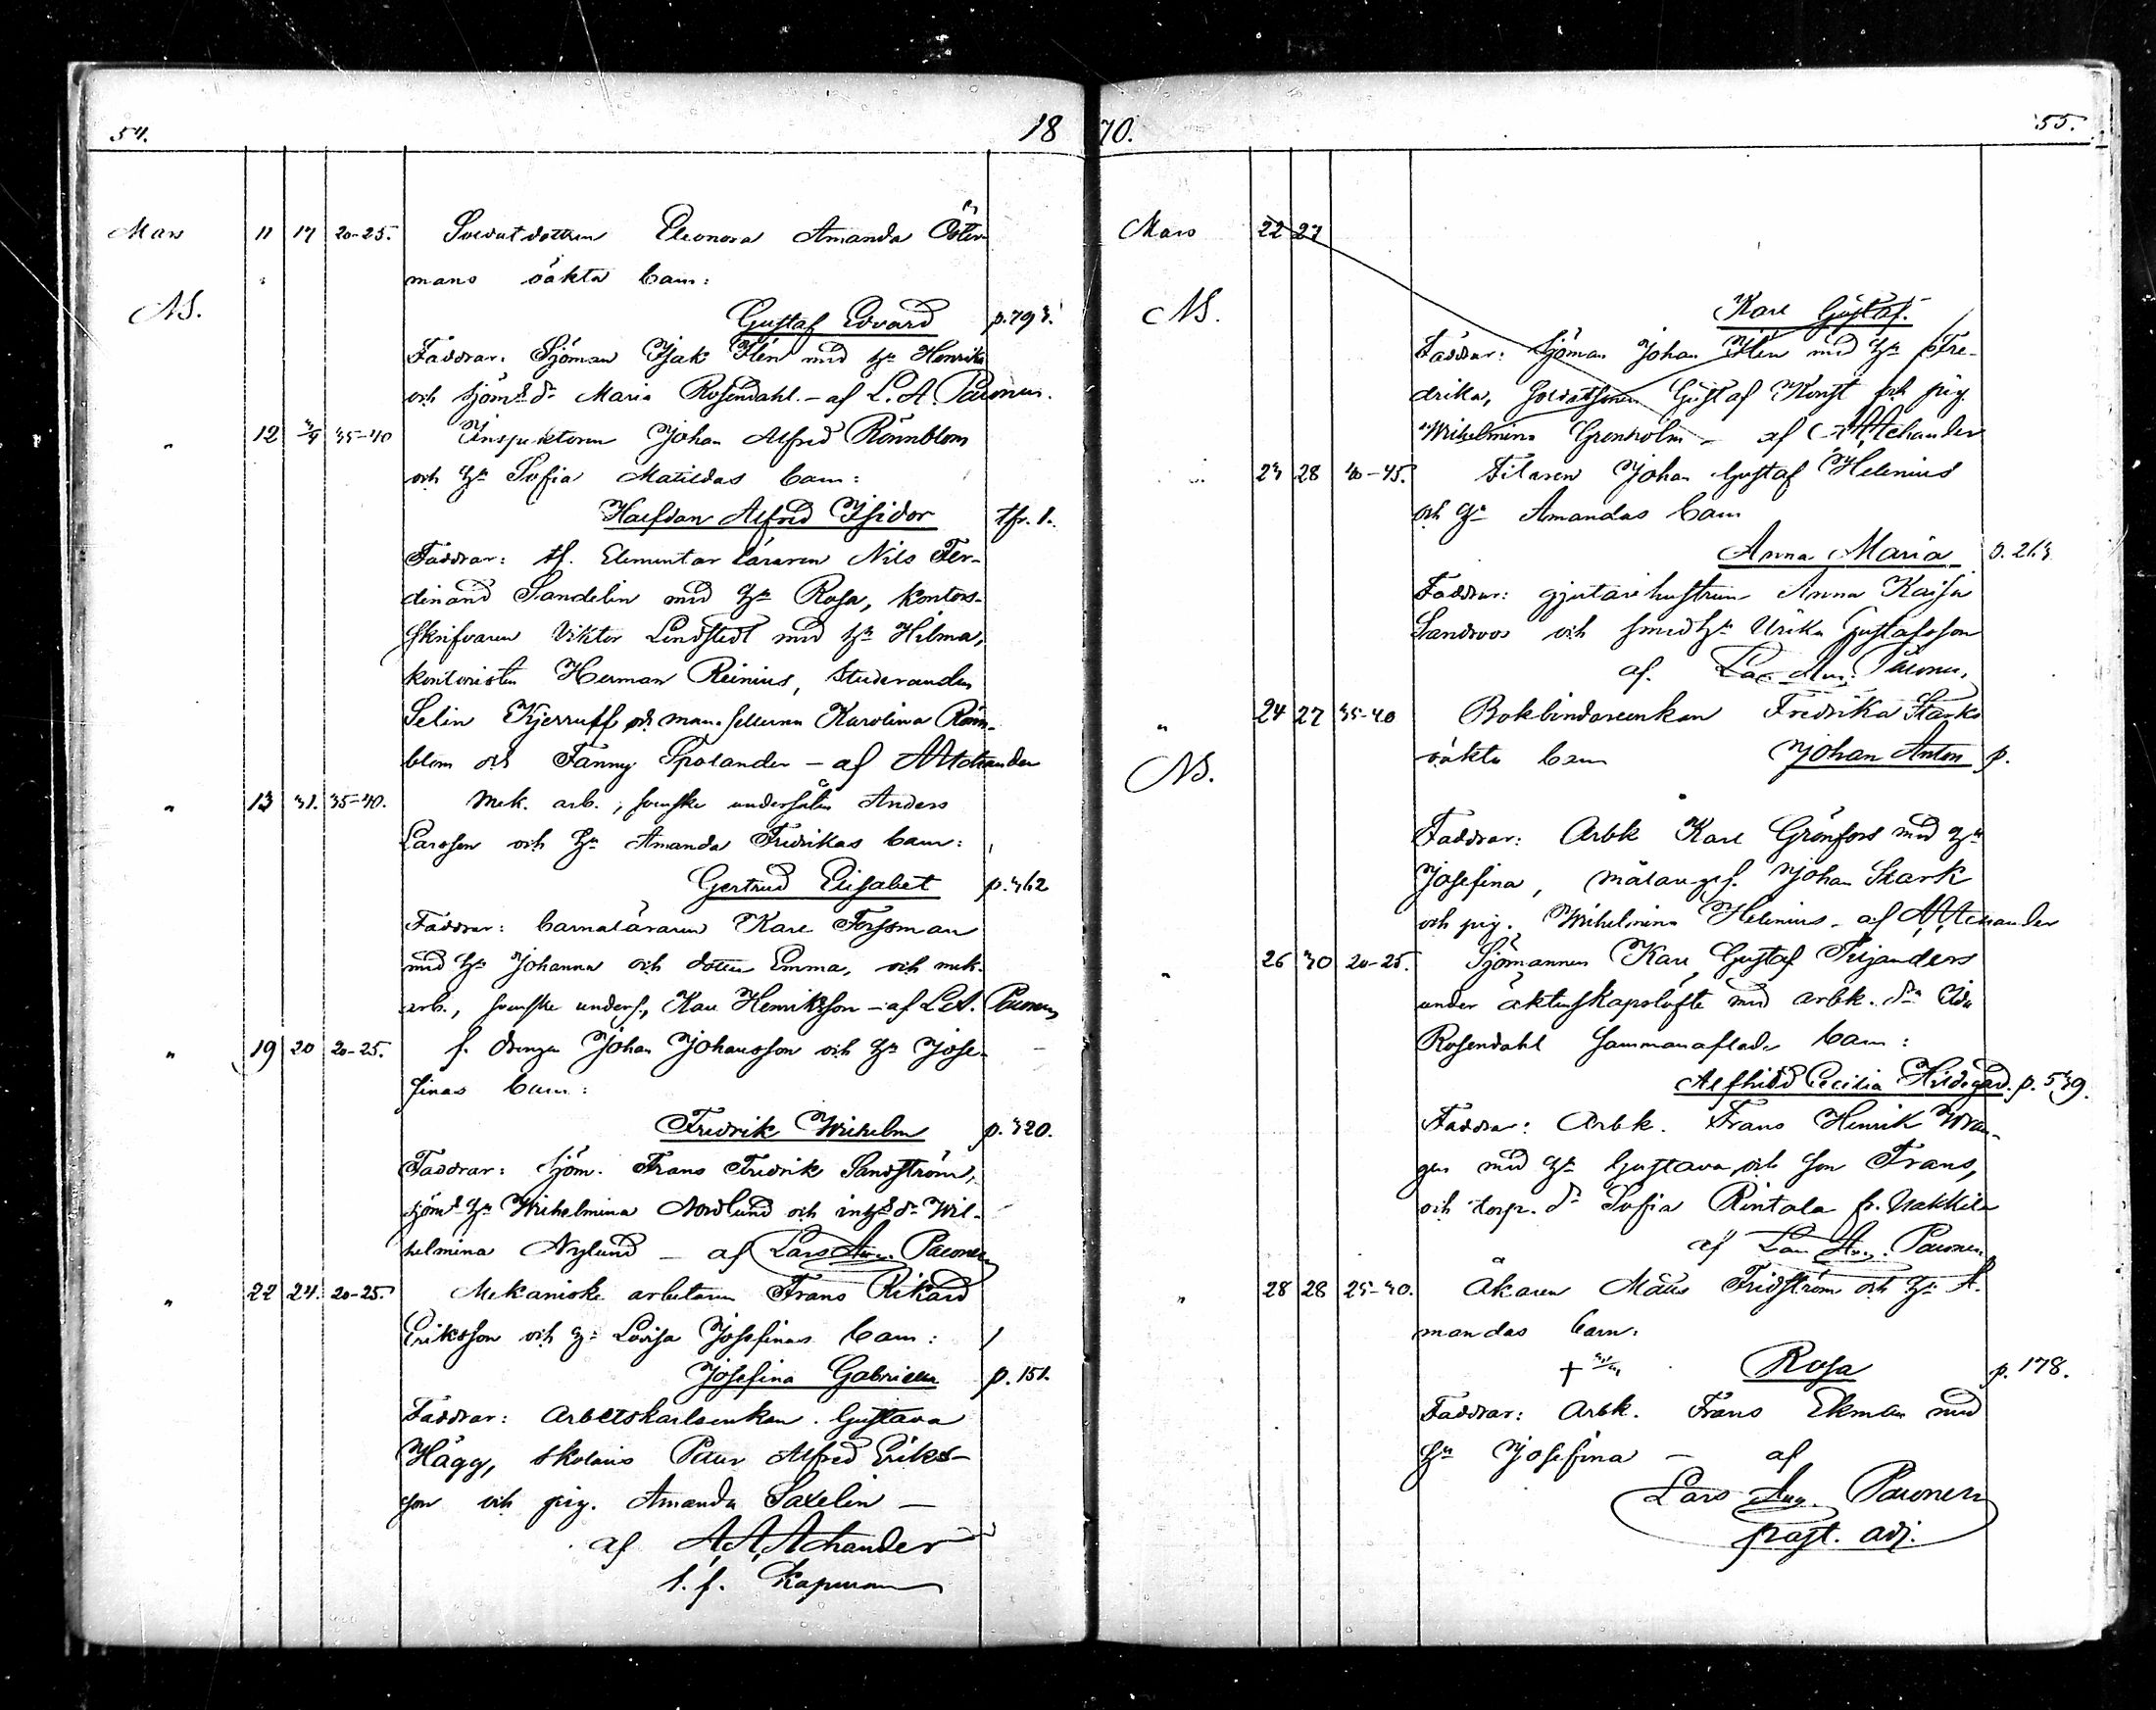 54. 18
Mars 11 17 20-25. Soldatdottren Eleonora Amanda Öster-
mans oäkta barn:
NB. Gustaf Edvard p. 793.
Faddrar: Sjöman Isak Flén med h:u Henrika
och sjöm:s d:r Maria Rosendahl. - af L. A. Päivonen.
" 12 3/4 35-40 Inspektoren Johan Alfred Rönnblom
och h:u Sofia Matildas barn:
Halfdan Alfred Isidor tfr. 1.
Faddrar: tf. Elementar läraren Nils Fer-
dinand Sandelin med h:u Rosa, kontors-
skrifvaren Viktor Lindstedt med h:u Hilma,
kontoristen Herman Reinius, studeranden
Selin Kjerruff och mamsellerna Karolina Rönn-
blom och Fanny Spolander - af A A Achander
" 13 31. 35-40. Mek. arb., svenske undersåten Anders
Larsson och h:u Amanda Fredrikas barn:
Gertrud Elisabet p. 362
Faddrar: barnaläraren Karl Forssman
med h:u Johanna och dotter Emma, och mek.
arb., svenske unders., Karl Henriksson - af L. A.
" 19 20 20-25. f. drengen Johan Johansson och h:u Jose-
finas barn:
Fredrik Wilhelm p. 320.
Faddrar: sjöm. Frans Fredrik Sandström,
sjöm:s h:u Wilhelmina Nordlund och inh:s d:r Wil-
helmina Nylund - af Lars Aug.
" 22 24. 20-25. Mekaniske arbetaren Frans Rikard
Eriksson och h:u Lovisa Josefinas barn:
Josefina Gabriella p. 151.
Faddrar: Arbetskarlsenkan Gustava
Hägg, skolaris Petter Alfred Eriks-
son och pig. Amanda Saxelin -
af A. A. Achander
t. f. Kapellan
70. 55.
Mars 22 27
NB. Karl Gustaf.
Faddrar: Sjöman Johan Flén med h:u Fre-
drika, Soldatsonen Gustaf Konst och pig.
Wilhelmina Grönholm - af A A Achander
" 23 28 40-45. Filaren Johan Gustaf Helenius
och h:u Amandas barn
Anna Maria p. 263
Faddrar: gjutarehustrun Anna Kaisa
Sandroos och smedh:u Ulrika Gustafsson
af Lars Aug.
" 24 27 35-40 Bokbindareenkan Fredrika Starks
NB. oäkta barn Johan Anton p.
Faddrar: Arbk Karl Grönfors med h:u
Josefina, målaregs. Johan Stark
och pig. Wilhelmina Helenius - af A. A. Achander
" 26 30 20-25. Sjömannen Karl Gustaf Frijanders
under äktenskapslöfte med arbk. d:r Ida
Rosendahl sammanaflade barn:
Alfhild Cecilia Hildegard. p. 539.
Faddrar: Arbk. Frans Henrik Wran-
gen med h:u Gustava, och son Frans,
och torp. d:r Sofia Rintala fr. Nakkila
af Lars Aug.
" 28 28 25-30. Åkaren Matts Fridström och h:u A-
mandas barn:
† Rosa p. 178.
Faddrar: Arbk. Frans Ekman med
h:u Josefina - af
Lars Aug.
past. adj.